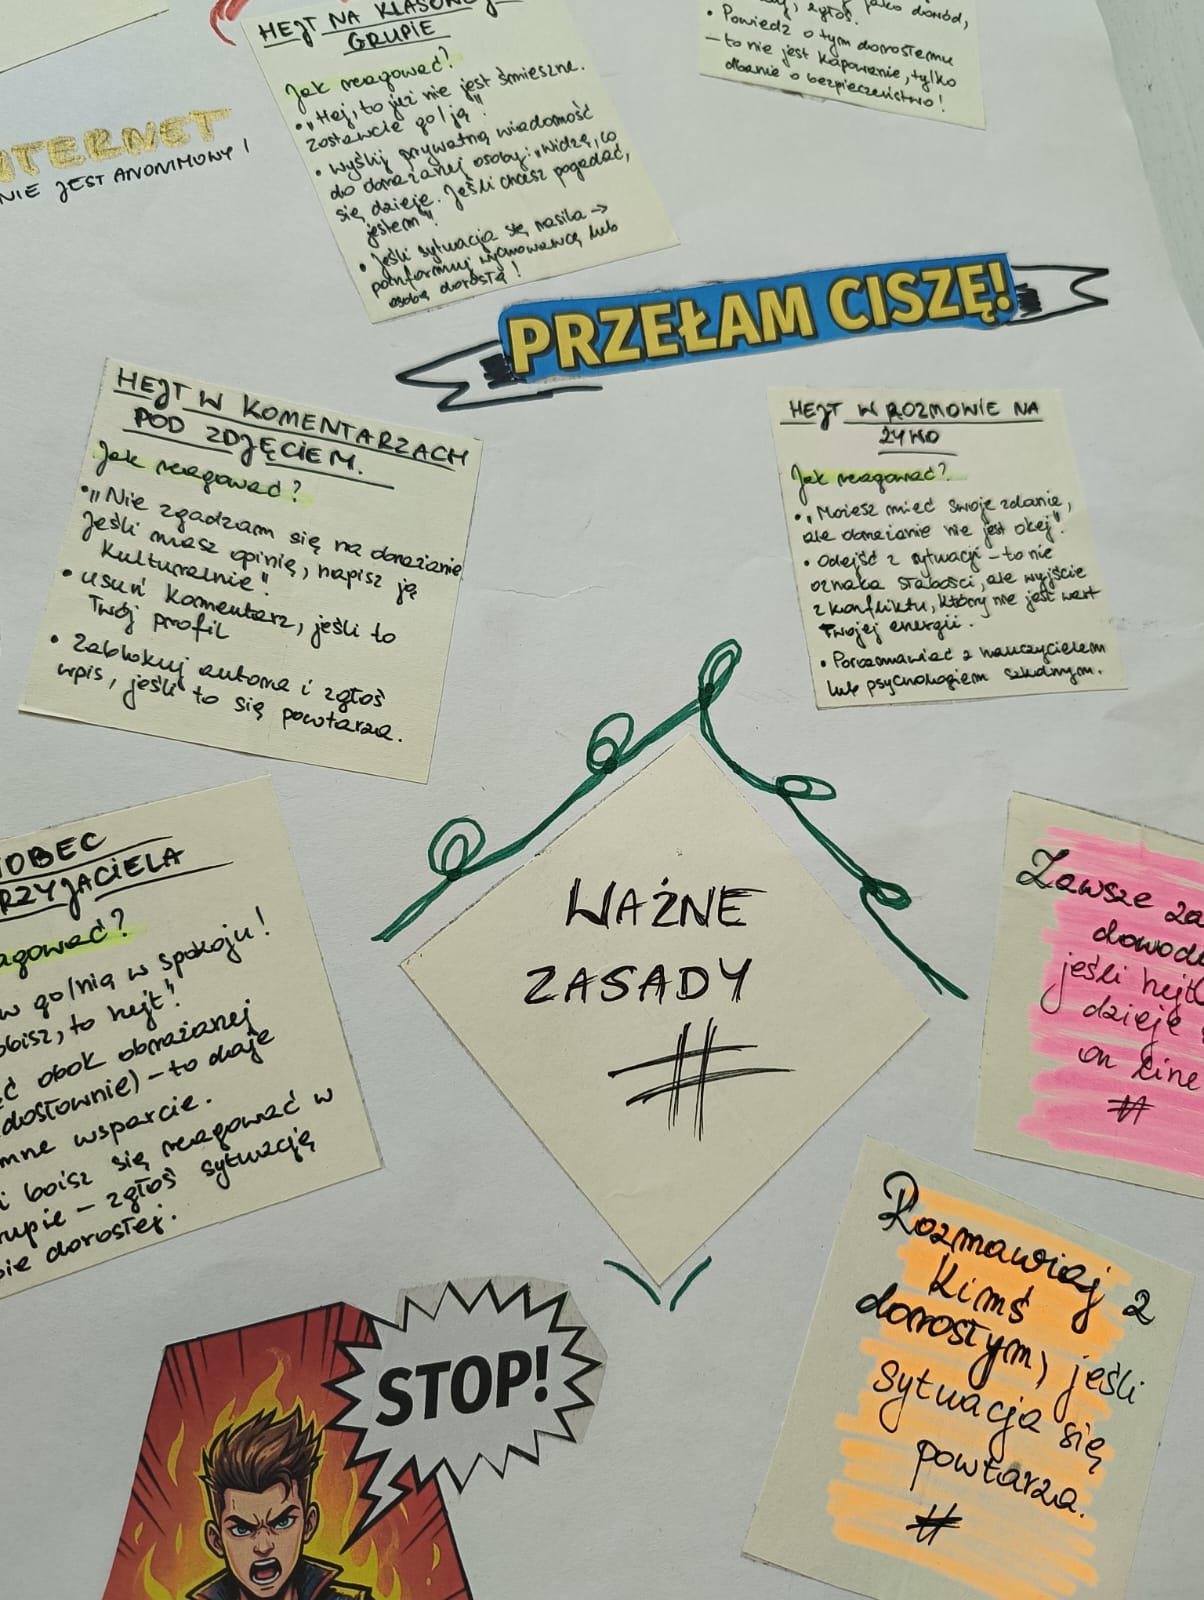 HEJT NA KLASOWEJ
GRUPIE
Jak reagować?
• „Hej, to już nie jest śmieszne.
Zostawcie go/ją"
• Wyślij prywatną wiadomość
do obrażanej osoby: „Widzę, co
się dzieje. Jeśli chcesz pogadać,
jestem".
• Jeśli sytuacja się nasila →
poinformuj wychowawcę lub
osobę dorosłą!
jako dowód,
zgłoś.
• Powiedz o tym dorosłemu
– to nie jest kapowanie, tylko
dbanie o bezpieczeństwo!
NTERNET
NIE JEST ANONIMOWY!
PRZEŁAM CISZĘ!
HEJT W KOMENTARZACH
POD ZDJĘCIEM.
Jak reagować?
• „Nie zgadzam się na obrażanie
Jeśli masz opinię, napisz ją
kulturalnie".
• Usuń komentarz, jeśli to
Twój profil
• Zablokuj autora i zgłoś
wpis, jeśli to się powtarza.
HEJT W ROZMOWIE NA
ŻYWO
Jak reagować?
• „Możesz mieć swoje zdanie,
ale obrażanie nie jest okej".
• Odejść z sytuacji – to nie
oznaka słabości, ale wyjście
z konfliktu, który nie jest wart
Twojej energii.
• Porozmawiać z nauczycielem
lub psychologiem szkolnym.
OBEC
RZYJACIELA
agować?
w go/nią w spokoju!
obisz, to hejt".
ć obok obrażanej
dosłownie) – to daje
mne wsparcie.
i boisz się reagować w
rupie – zgłoś sytuację
bie dorosłej.
WAŻNE
ZASADY
#
Zawsze za
dowod
jeśli hejt
dzieje
on line
#
Rozmawiaj z
kimś
dorosłym, jeśli
sytuacja się
powtarza.
#
STOP!